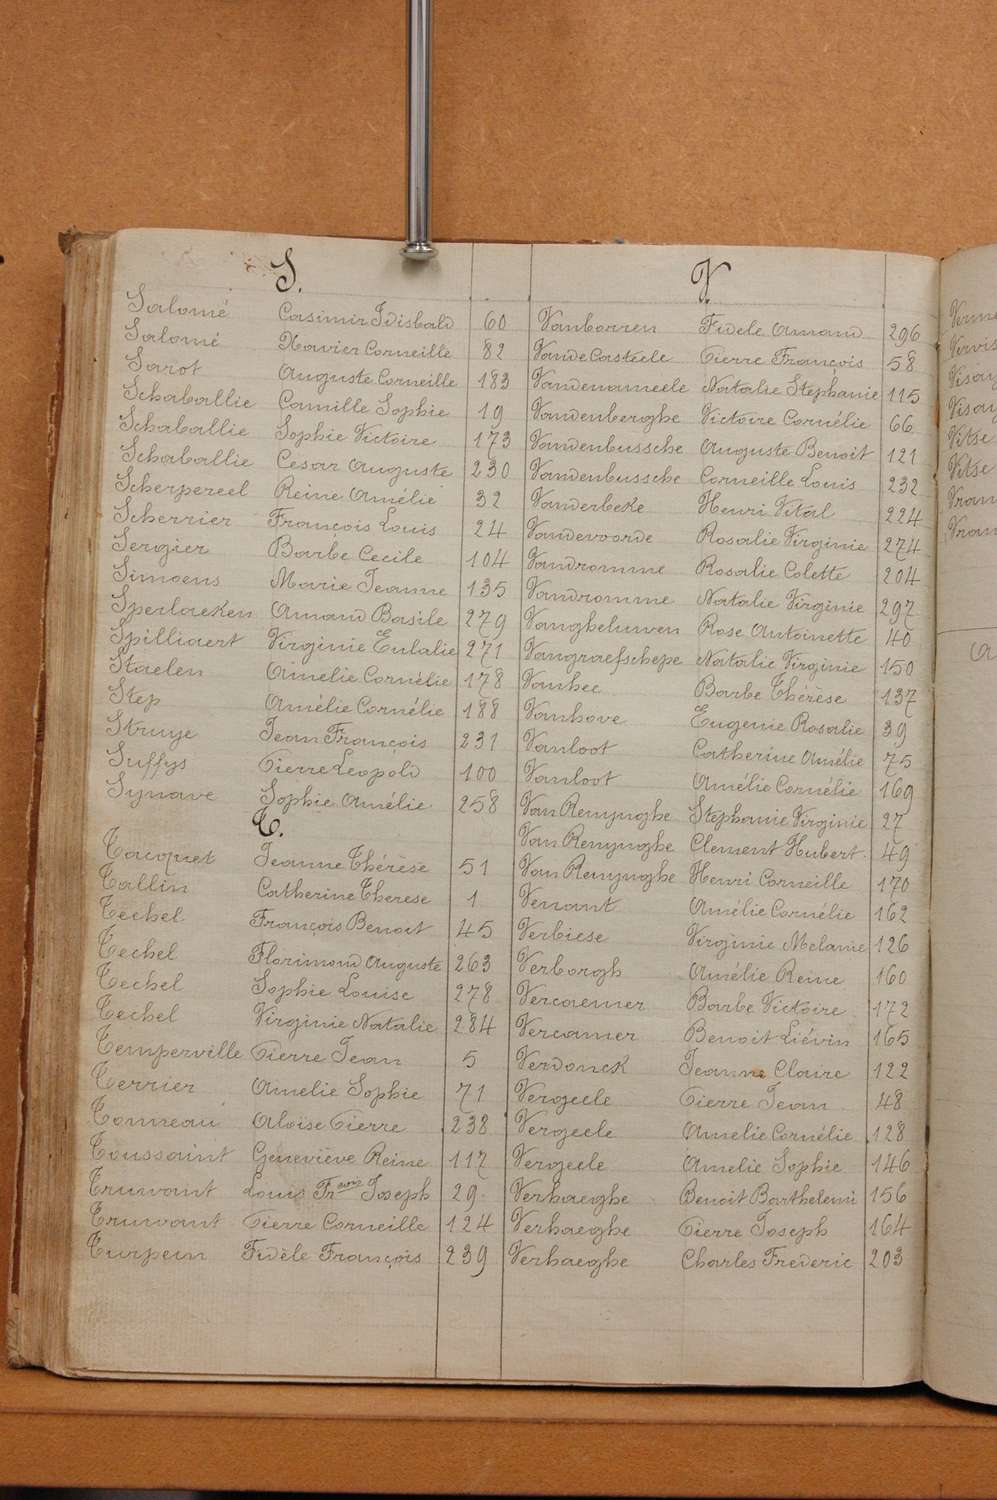 S.
Salomé Casimir Idisbald 60
Salomé Xavier Corneille 82
Sarot Auguste Corneille 183
Schaballie Camille Sophie 19
Schaballie Sophie Victoire 173
Schaballie Cesar Auguste 230
Scherpereel Reine Amélie 32
Scherrier François Louis 24
Sergier Barbe Cecile 104
Simoens Marie Jeanne 135
Sperlaeken Amand Basile 279
Spilliaert Virginie Eulalie 271
Staelen Amelie Cornélie 178
Step Amélie Cornélie 188
Struye Jean François 231
Suffys Pierre Leopold 100
Synave Sophie Amélie 258
T.
Tacquet Jeanne Thérèse 51
Tallin Catherine Therese 1
Techel François Benoit 45
Techel Florimond Auguste 263
Techel Sophie Louise 278
Techel Virginie Natalie 284
Temperville Pierre Jean 5
Terrier Amelie Sophie 71
Tonneau Aloïse Pierre 238
Toussaint Geneviève Reine 117
Truwant Louis Frçois Joseph 29
Truwant Pierre Corneille 124
Turpein Fidèle François 239
V.
Vanborren Fidele Amand 296
VandeCasteele Pierre François 58
Vandenameele Natalie Stephanie 115
Vandenberghe Victoire Cornélie 66
Vandenbussche Auguste Benoit 121
Vandenbussche Corneille Louis 232
Vanderbeke Henri Vital 224
Vandevoorde Rosalie Virginie 274
Vandromme Rosalie Colette 204
Vandromme Natalie Virginie 297
Vangheluwen Rose Antoinette 40
Vangraefschepe Natalie Virginie 150
Vanhee Barbe Thérèse 137
Vanhove Eugenie Rosalie 39
Vanloot Catherine Amélie 75
Vanloot Amélie Cornélie 169
Van Remynghe Stephanie Virginie 27
Van Remynghe Clement Hubert 49
Van Remynghe Henri Corneille 170
Venant Amélie Cornélie 162
Verbiese Virginie Melanie 126
Verborgh Amélie Reine 160
Vercaemer Barbe Victoire 172
Vercamer Benoit Liévin 165
Verdonck Jeanne Claire 122
Vergeele Pierre Jean 48
Vergeele Amelie Cornélie 128
Vergeele Amelie Sophie 146
Verhaeghe Benoit Barthelemi 156
Verhaeghe Pierre Joseph 164
Verhaeghe Charles Frederic 203
Vitse
Vitse